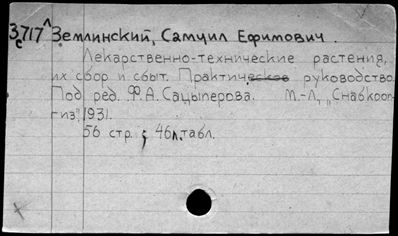 З 717^л Землинский, Самуил Ефимович.
с
Лекарственно-технические растения,
их сбор и сбыт. Практическое руководство.
Под ред. Ф.А. Сацыперова. М.-Л, "Снабкооп-
гиз", 1931.
56 стр.; 46 л. табл.